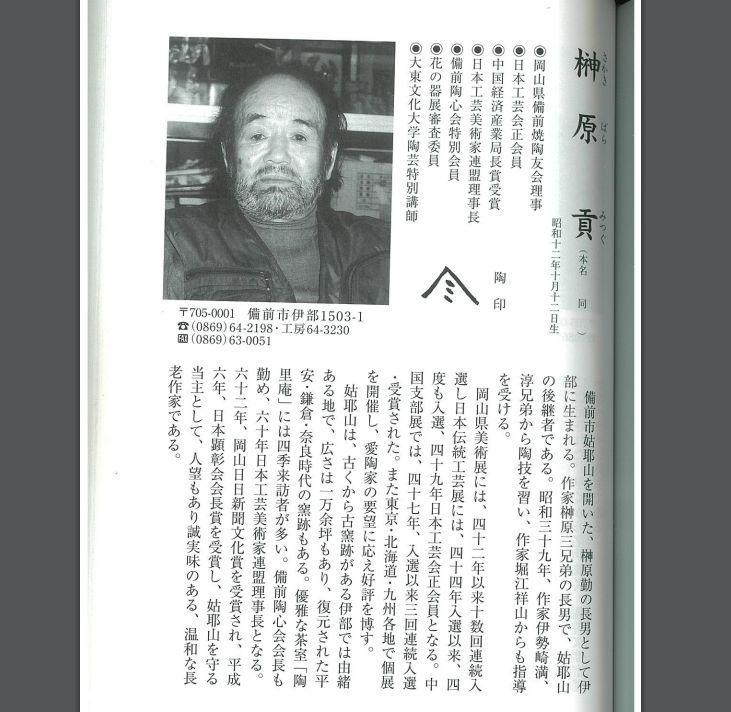 榊原　貢
さかき ばら みつぐ
（本名　同　）
昭和十二年十月十二日生
●岡山県備前焼陶友会理事
●日本工芸会正会員
●中国経済産業局長賞受賞
●日本工芸美術家連盟理事長
●備前陶心会特別会員
●花の器展審査委員
●大東文化大学陶芸特別講師
陶印
〒705-0001　備前市伊部1503-1
☎(0869)64-2198・工房64-3230
FAX(0869)63-0051
備前市姑耶山を開いた、榊原勤の長男として伊
部に生まれる。作家榊原三兄弟の長男で、姑耶山
の後継者である。昭和三十九年、作家伊勢崎満、
淳兄弟から陶技を習い、作家堀江祥山からも指導
を受ける。
岡山県美術展には、四十二年以来十数回連続入
選し日本伝統工芸展には、四十四年入選以来、四
度も入選、四十九年日本工芸会正会員となる。中
国支部展では、四十七年、入選以来三回連続入選
・受賞された。また東京・北海道・九州各地で個展
を開催し、愛陶家の要望に応え好評を博す。
姑耶山は、古くから古窯跡がある伊部では由緒
ある地で、広さは一万余坪もあり、復元された平
安・鎌倉・奈良時代の窯跡もある。優雅な茶室「陶
里庵」には四季来訪者が多い。備前陶心会会長も
勤め、六十年日本工芸美術家連盟理事長となる。
六十二年、岡山日日新聞文化賞を受賞され、平成
六年、日本顕彰会会長賞を受賞し、姑耶山を守る
当主として、人望もあり誠実味のある、温和な長
老作家である。